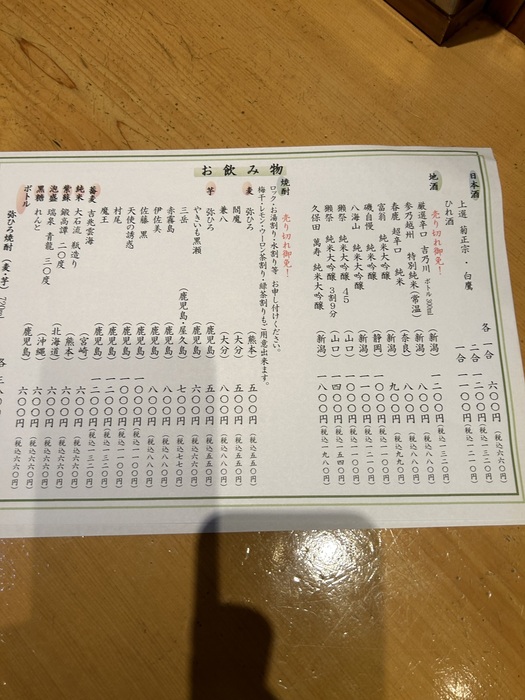 お飲み物
日本酒
上選 菊正宗・白鷹 各 一合 六〇〇円（税込六六〇円）
二合 一二〇〇円（税込一三二〇円）
ひれ酒 一合 一一〇〇円（税込一二一〇円）
売り切れ御免！
地酒
厳選辛口 吉乃川 ボトル300ml（新潟）一二〇〇円（税込一三二〇円）
参乃越州 特別純米（常温）（新潟）八〇〇円（税込八八〇円）
春鹿 超辛口 純米（奈良）八〇〇円（税込八八〇円）
富翁 純米大吟醸 九〇〇円（税込九九〇円）
磯自慢 純米吟醸（静岡）一〇〇〇円（税込一一〇〇円）
八海山 純米大吟醸（新潟）一一〇〇円（税込一二一〇円）
獺祭 純米大吟醸 ４５（山口）一〇〇〇円（税込一一〇〇円）
獺祭 純米大吟醸 ３割９分（山口）一四〇〇円（税込一五四〇円）
久保田 萬寿 純米大吟醸（新潟）一八〇〇円（税込一九八〇円）
焼酎
売り切れ御免！
ロック・お湯割り・水割り等 お申し付けください。
梅干・レモン・ウーロン茶割り・緑茶割りもご用意出来ます。
麦 弥ひろ（熊本）五〇〇円（税込五五〇円）
閻魔（大分）五〇〇円（税込五五〇円）
兼八（大分）八〇〇円（税込八八〇円）
芋 弥ひろ（鹿児島）五〇〇円（税込五五〇円）
やきいも黒瀬（鹿児島）六〇〇円（税込六六〇円）
三岳（鹿児島・屋久島）七〇〇円（税込七七〇円）
赤霧島（鹿児島）八〇〇円（税込八八〇円）
伊佐美（鹿児島）八〇〇円（税込八八〇円）
佐藤 黒（鹿児島）八〇〇円（税込八八〇円）
天使の誘惑（鹿児島）一〇〇〇円（税込一一〇〇円）
村尾（鹿児島）一〇〇〇円（税込一一〇〇円）
魔王（鹿児島）一二〇〇円（税込一三二〇円）
蕎麦 吉兆雲海（宮崎）六〇〇円（税込六六〇円）
純米 大石流 甑造り（熊本）六〇〇円（税込六六〇円）
紫蘇 鍛高譚 二〇度（北海道）六〇〇円（税込六六〇円）
泡盛 瑞泉 青龍 三〇度（沖縄）六〇〇円（税込六六〇円）
黒糖 れんと（鹿児島）六〇〇円（税込六六〇円）
ボトル 弥ひろ焼酎（麦・芋）